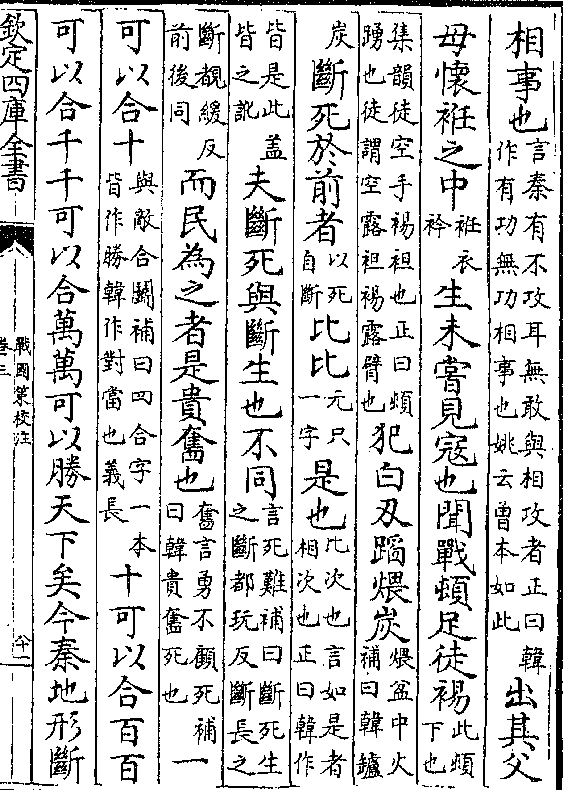 相事也言秦有不攻耳無敢與相攻者正曰韓作有功無功相事也姚云曾本如此出其父
母懷袵之中袵衣衿生未嘗見寇也聞戰頓足徒裼此頓下也
集韻徒空手裼袒也正曰頓踴也徒謂空露袒裼露臂也犯白刃蹈煨炭煨盆中火補曰韓鑪
炭斷死於前者以死自斷比比元只一字是也比次也言如是者相次也正曰韓作
皆是此盖皆之訛夫斷死與斷生也不同言死難補曰斷死生之斷都玩反斷長之
斷覩緩反前後同而民為之者是貴奮也奮言勇不顧死補曰韓貴奮死也一
可以合十與敵合鬬補曰四合字一本皆作勝韓作對當也義長十可以合百百
可以合千千可以合萬萬可以勝天下矣今秦地形斷
欽定四庫全書
戰國策校注
卷三